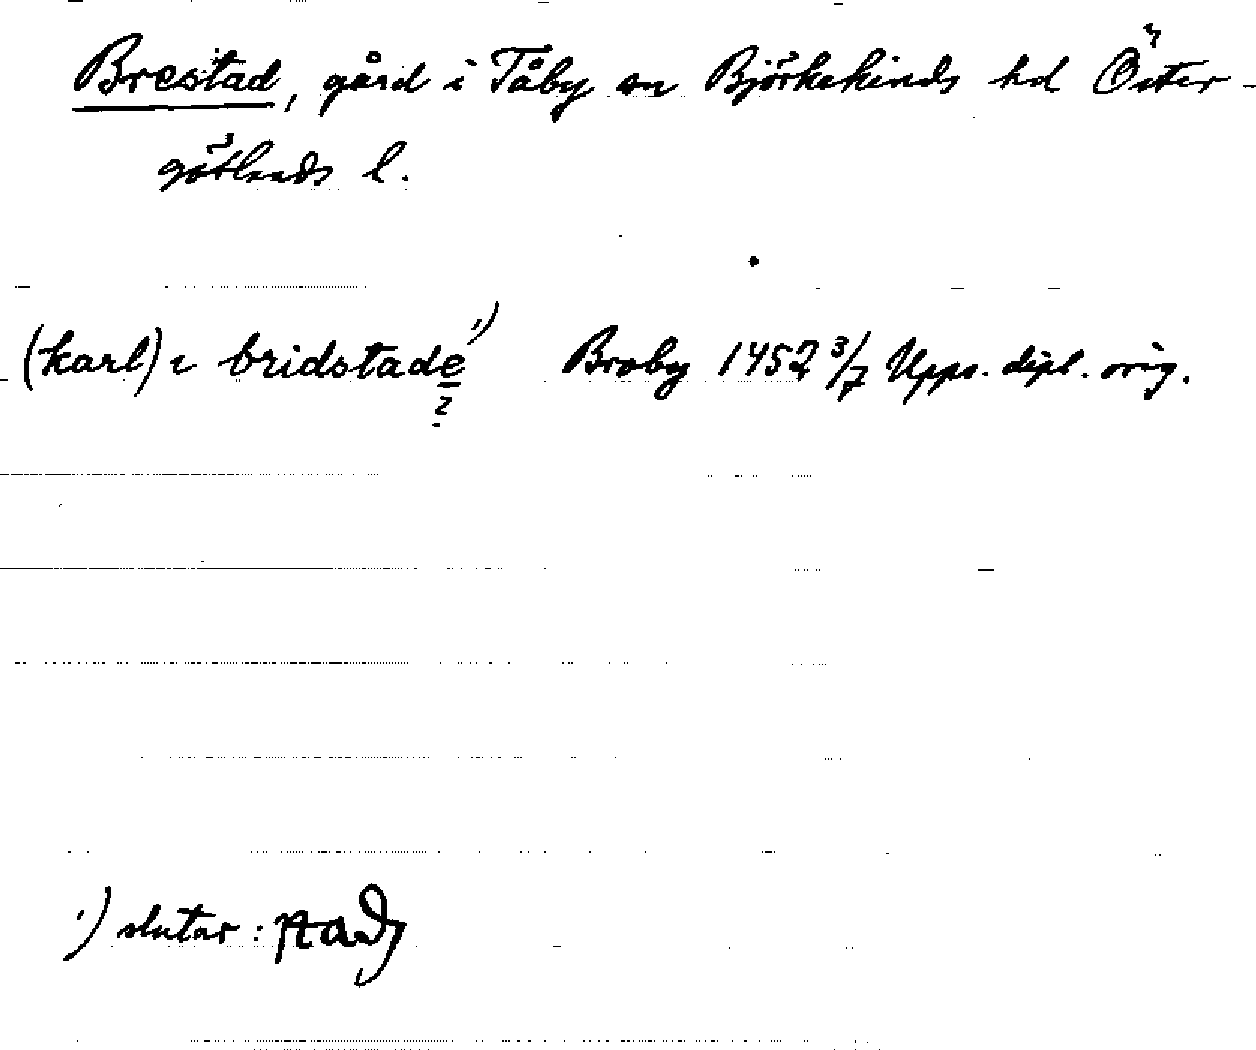 Brestad, gård i Tåby sn Björkekinds hd Öster-
götlands l.
(karl) i bridstade ¹) Broby 1452 3/7 Upps. dipl. orig.
z
¹) slutar: stadz